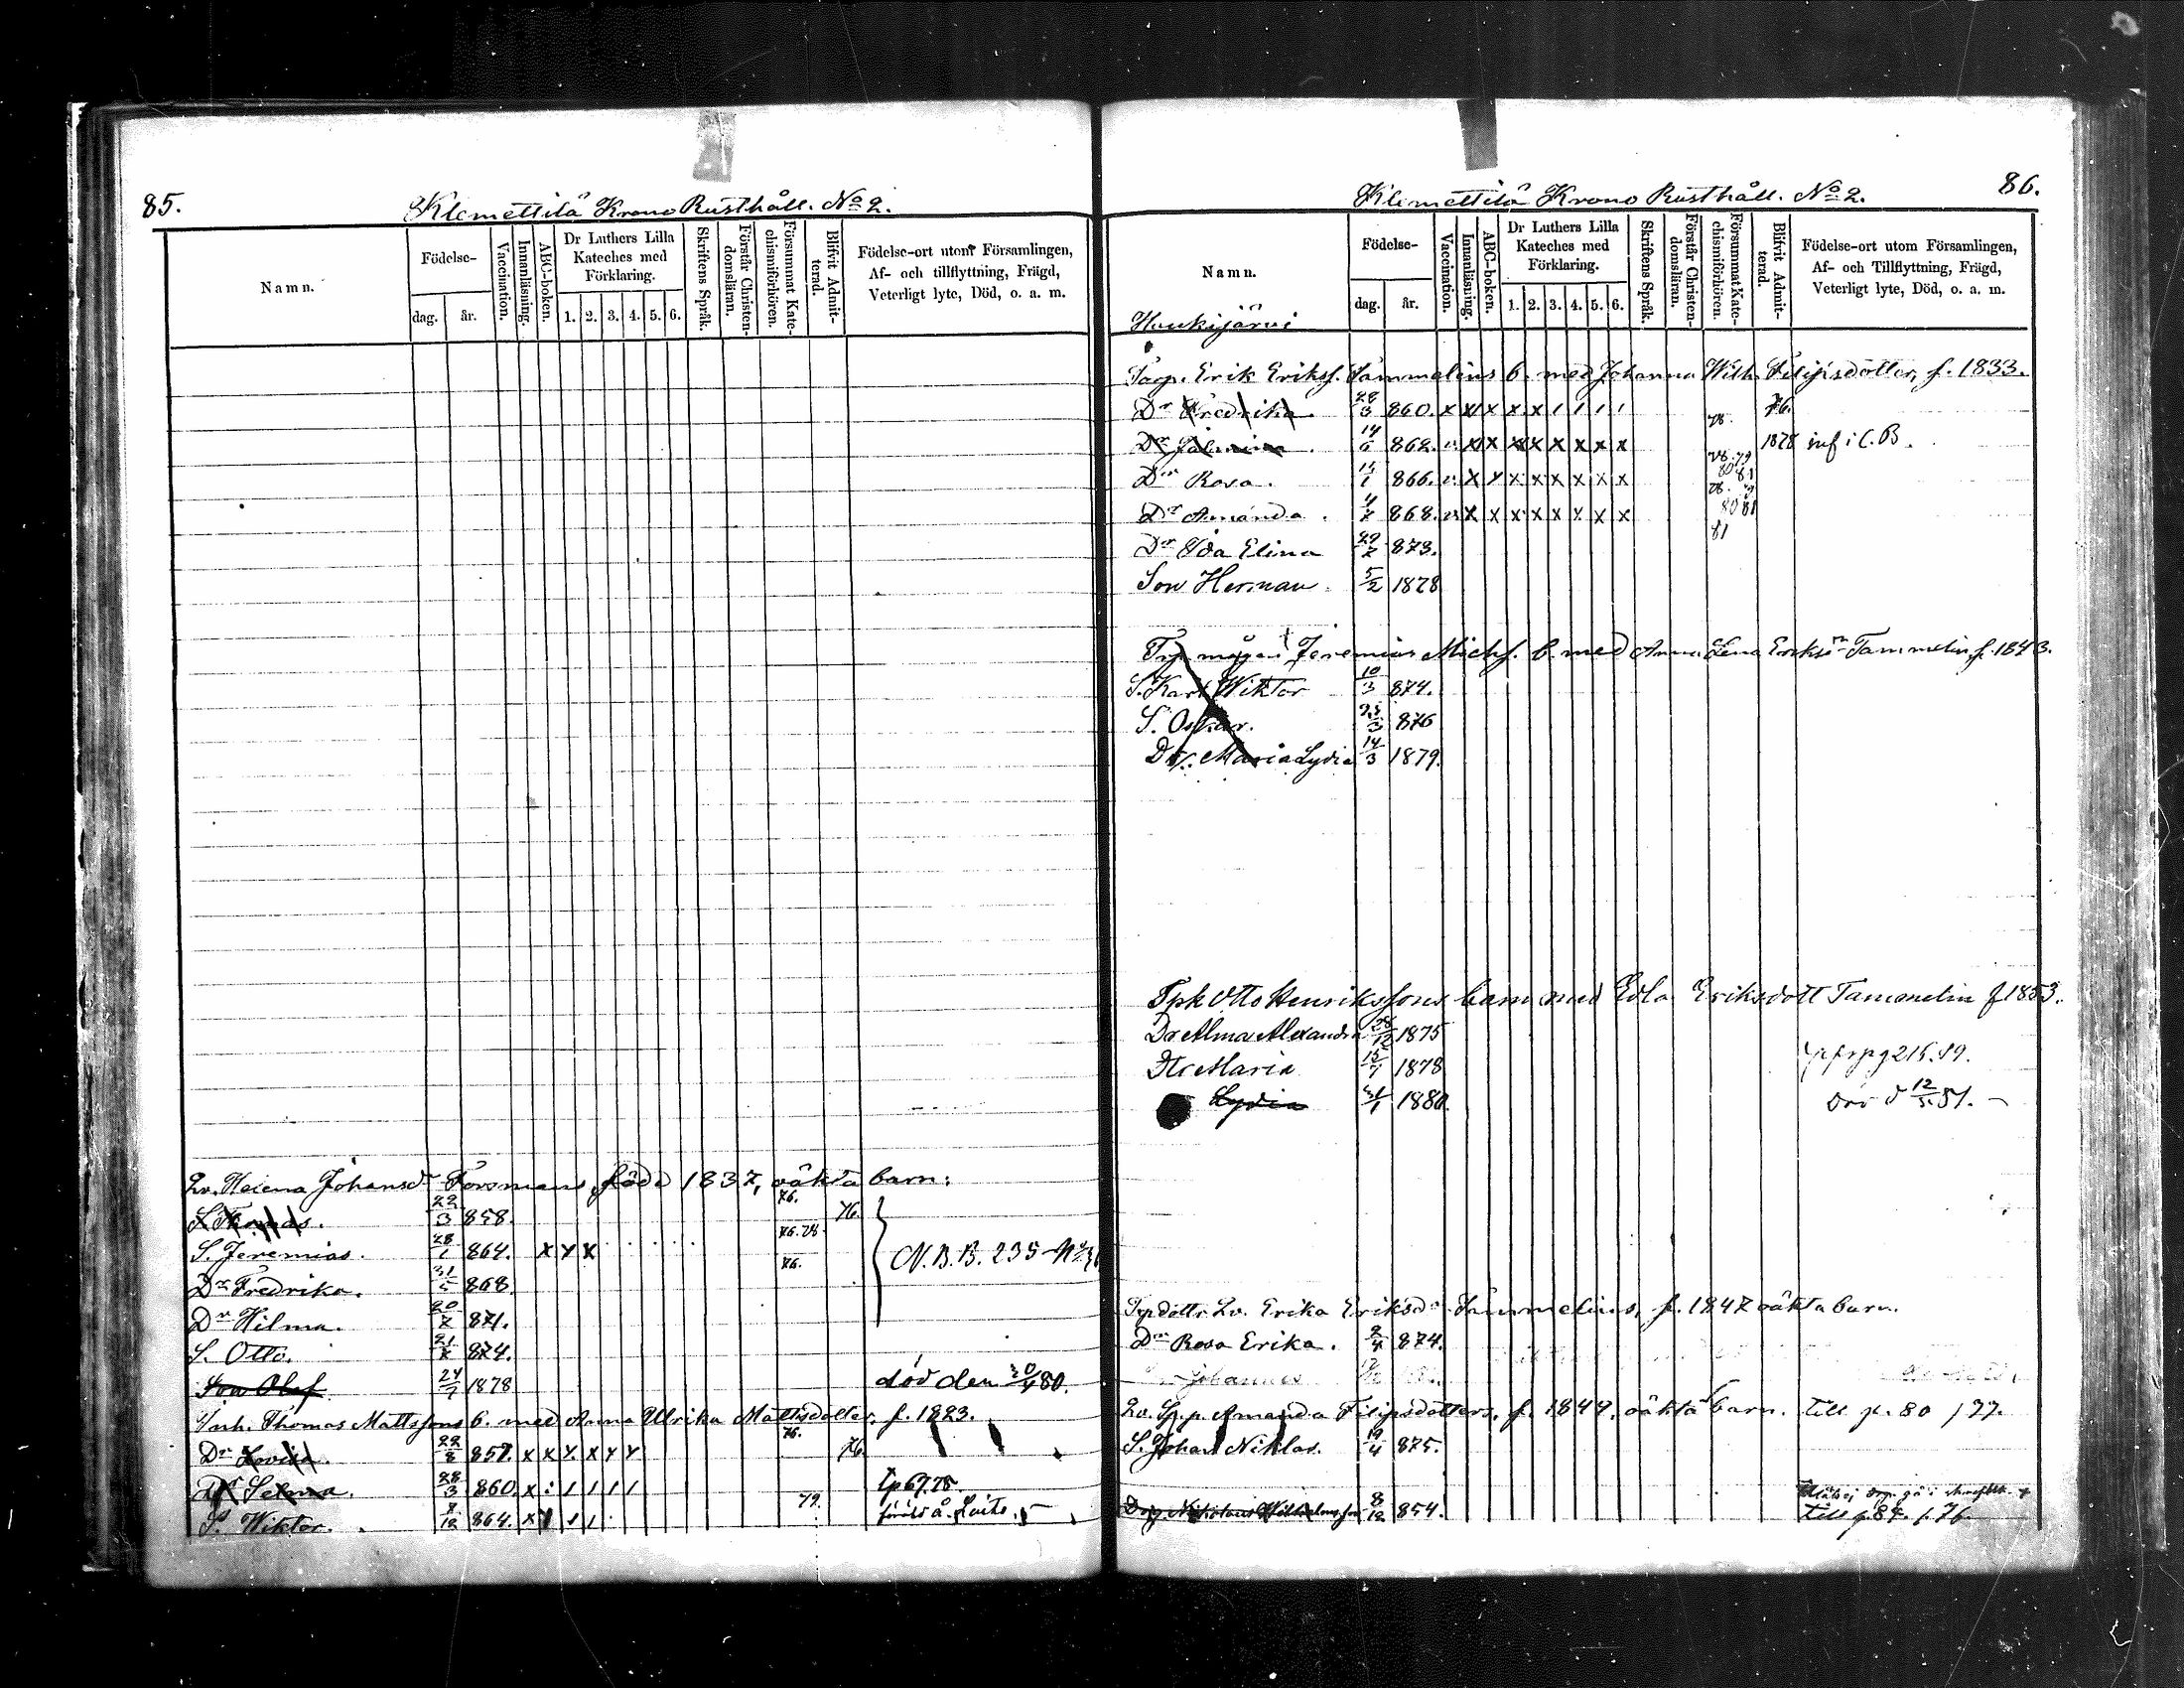 85.
Klemettilä Krono Rusthåll. No 2.
Namn.
Födelse-
dag.
år.
Vaccination.
Innanläsning.
ABC-boken.
Dr Luthers Lilla
Kateches med
Förklaring.
1. 2. 3. 4. 5. 6.
Skriftens Språk.
Förstår Christen-
domsläran.
Försummat Kate-
chismiförhören.
Blifvit Admit-
terad.
Födelse-ort utom Församlingen,
Af- och tillflyttning, Frägd,
Veterligt lyte, Död, o. a. m.
Qv. Helena Johansdr Forsmans, född 1837, oäkta barn:
S. Thomas. 22/3 858. 76. 76.
S. Jeremias. 28/1 864. x x x 76. 78.
Dr Fredrika. 31/5 868. 76.
N.B.B. 235
Dr Hilma. 20/7 871.
S. Otto. 21/7 874.
Son Olof 24/7 1878 död den 30/4 80.
Inh. Thomas Mattssons b. med Anna Ulrika Mattsdotter. f. 1823.
Dr Lovisa. 22/8 857. x x x x x x 76. 76.
Dr Selma. 28/3 860. x : 1 1 1 1 tp 67. 78.
S. Wiktor. 8/12 864. x 1 1 1 79.
86.
Klemettilä Krono Rusthåll. No 2.
Namn.
Födelse-
dag.
år.
Vaccination.
Innanläsning.
ABC-boken.
Dr Luthers Lilla
Kateches med
Förklaring.
1. 2. 3. 4. 5. 6.
Skriftens Språk.
Förstår Christen-
domsläran.
Försummat Kate-
chismiförhören.
Blifvit Admit-
terad.
Födelse-ort utom Församlingen,
Af- och Tillflyttning, Frägd,
Veterligt lyte, Död, o. a. m.
Haukijärvi
Torp. Erik Erikss. Tammelins b. med Johanna Wilh. Filipsdotter, f. 1833.
Dr Fredrika. 28/3 860. x x x x x 1 1 1 1 78. 76.
Dr 14/6 862. v. x x x x x x x x 78. 79 1878 inf i C.B.
Dr Rosa. 15/1 866. v. x x x x x x x x 80 81
Dr Amanda. 4/7 868. v. x x x x x x x x 80 81
Dr Ida Elina 29/7 873. 81
Son Herman. 5/2 1878
Trp mågen Jeremias Michs. b. med Anna Lena Eriksdr Tammelin, f. 1843.
S. Karl Wiktor 10/3 874.
S. Oskar. 25/3 876
Dr. Maria Lydia 14/3 1879.
Tpk Otto Henrikssons barn med Edla Eriksdott Tammelin f 1853.
Dr Alma Alexandra 28/12 1875
Dr Maria 15/1 1878
Lydia 31/1 1880. 12/5. 81.
Trpdottr Qv. Erika Eriksdr Tammelins, f. 1847 oäkta barn.
Dr Rosa Erika. 2/4 874.
Johannes
Qv. Sp.p. Amanda Filipsdotters, f. 1849, oäkta barn. till p. 80 / 77.
S. Johan Niklas. 19/4 875.
Drg. Nikolaus Wilhelmsson 8/12 854. till p 84. / 76.